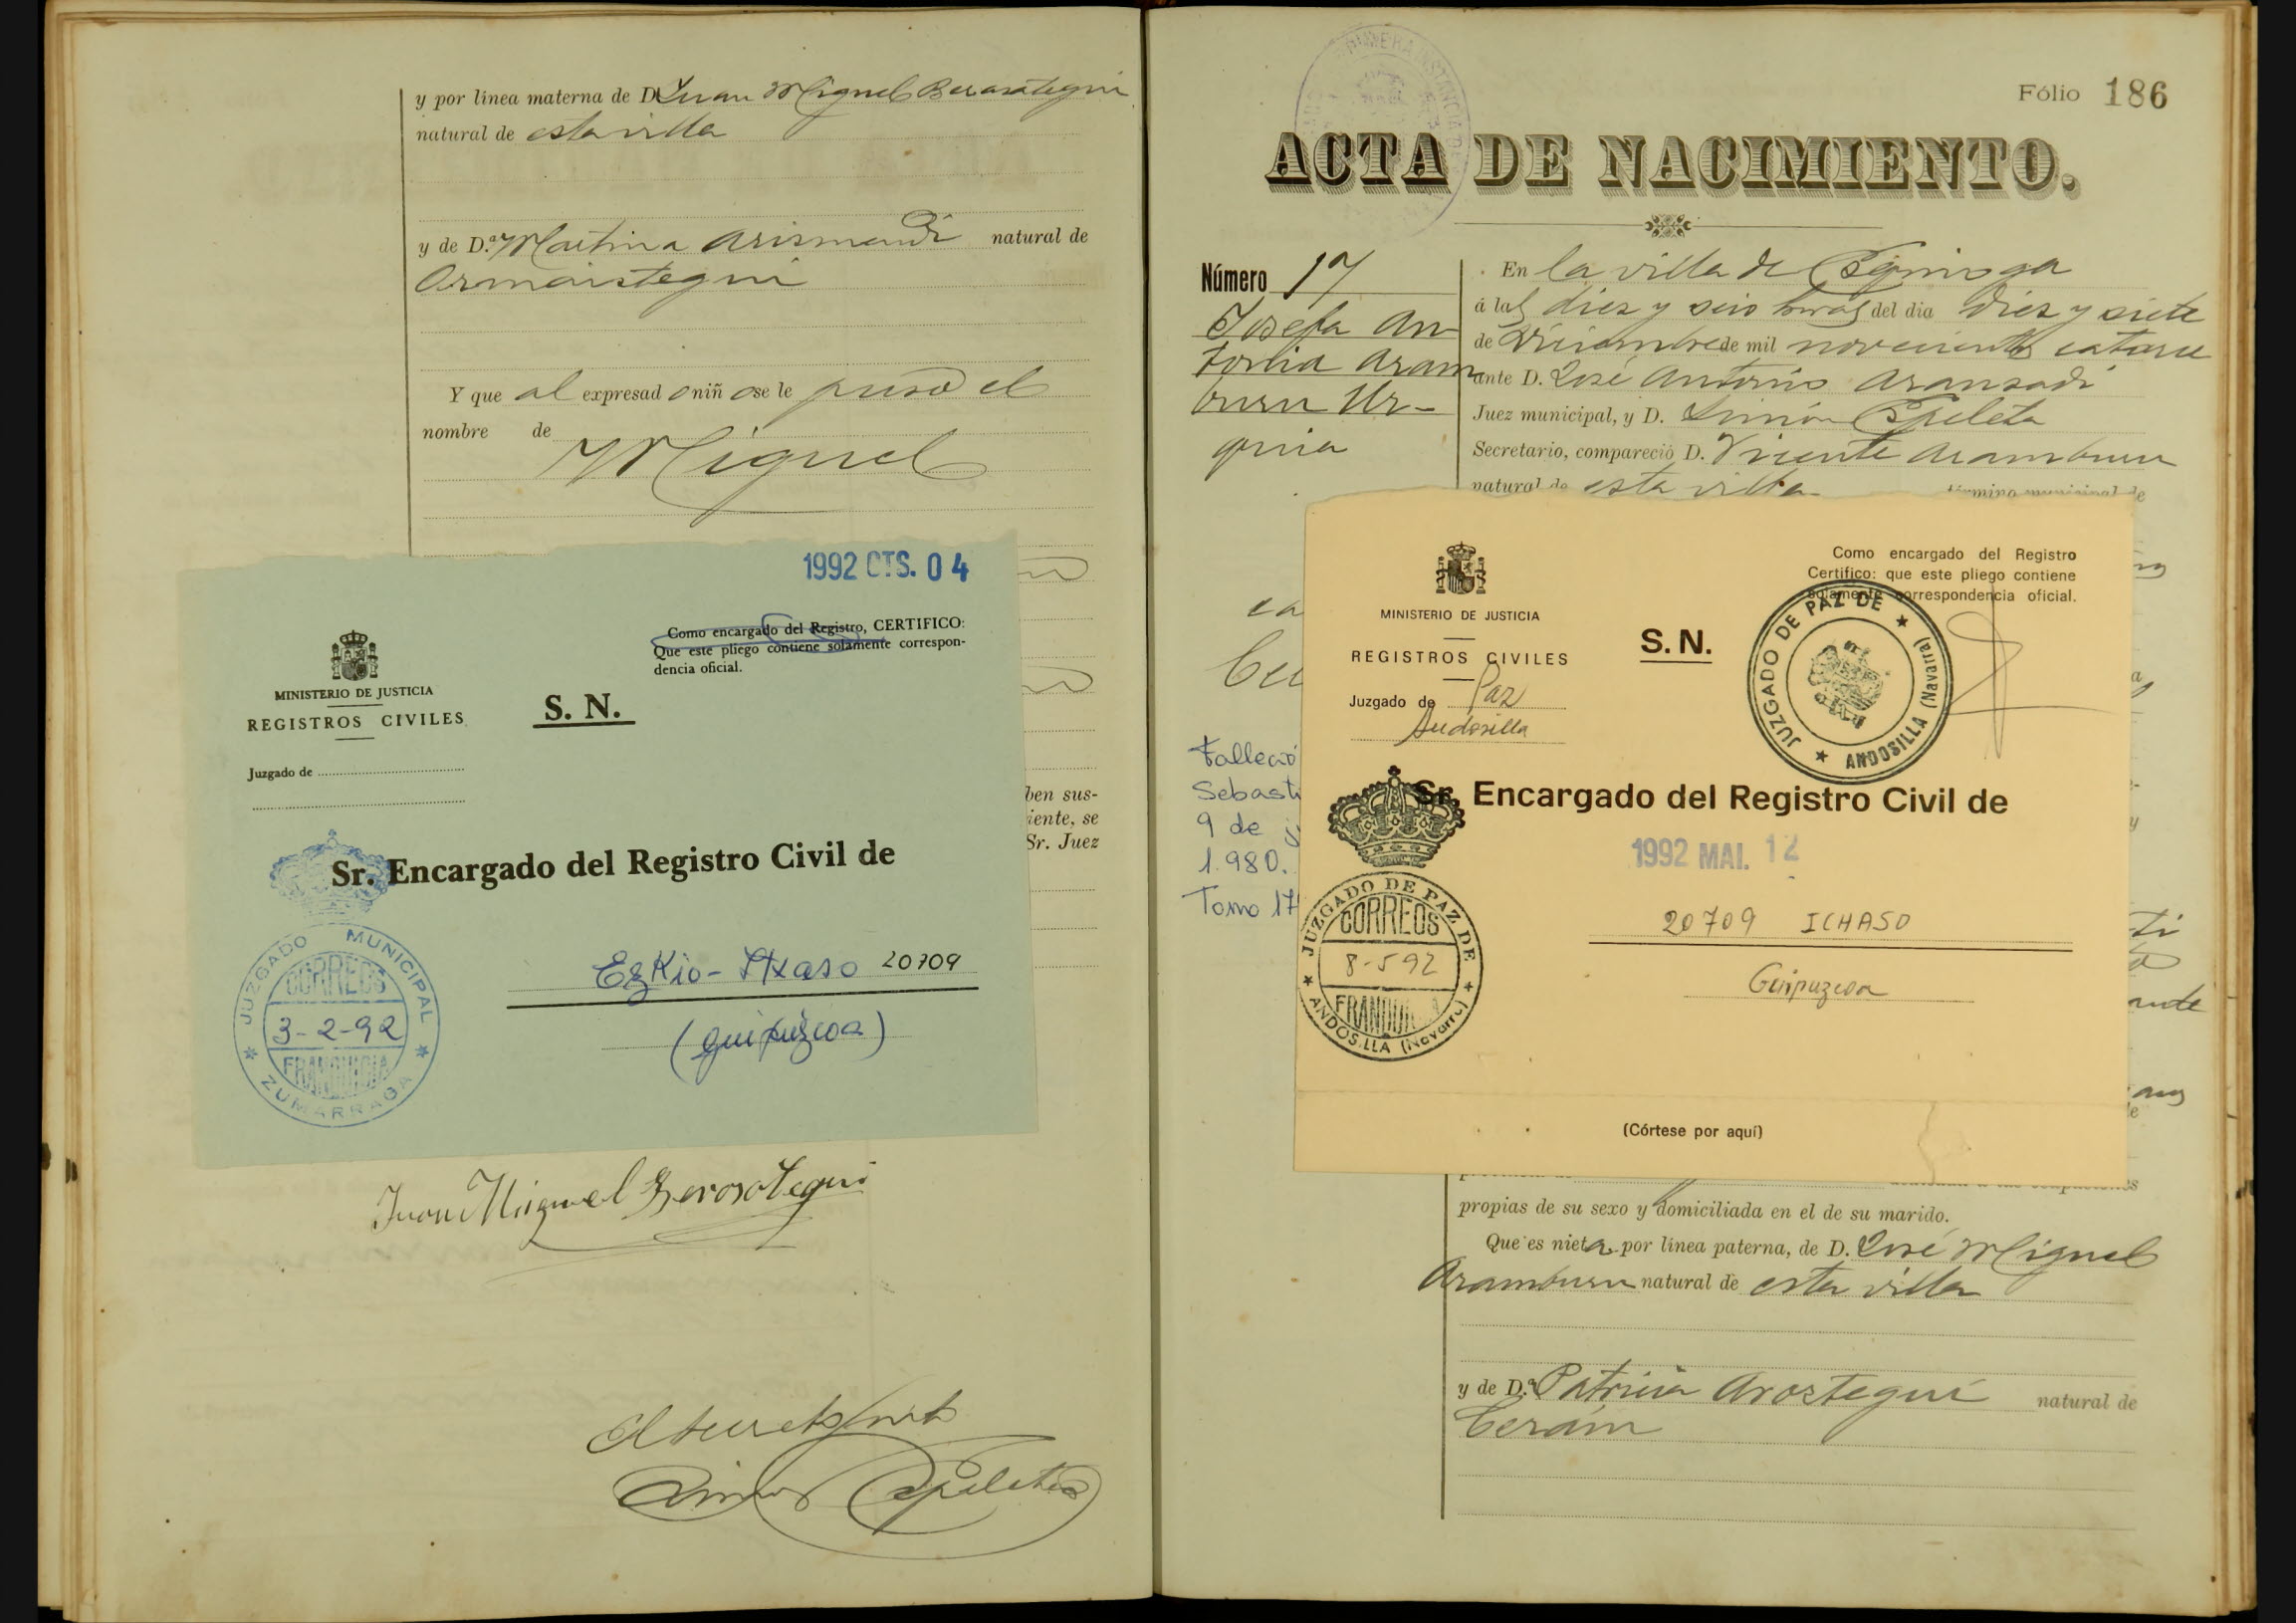 y por línea materna de D. Juan Miguel Berasategui
natural de esta villa
y de D.ª Martina Arismendi natural de
Ormaistegui
Y que al expresad o niñ o se le puso el
nombre de
Miguel
1992 OTS. 04
Como encargado del Registro, CERTIFICO:
Que este pliego contiene solamente correspon-
dencia oficial.
MINISTERIO DE JUSTICIA
REGISTROS CIVILES
S. N.
Juzgado de
ben sus-
iente, se
Sr. Juez
Sr. Encargado del Registro Civil de
JUZGADO MUNICIPAL
CORREOS
3-2-92
FRANQUICIA
ZUMARRAGA
Ezkio-Itxaso 20709
(Guipúzcoa)
Juan Miguel Berasategui
Simon Espeleta
Fólio 186
ACTA DE NACIMIENTO.
Número 17
Josefa An-
tonia Aram
buru Ur-
quia
En la villa de Ezquioga
á las diez y seis horas del dia diez y siete
de Diciembre de mil novecientos catorce
ante D. José Antonio Aransadi
Juez municipal, y D. Simón Espeleta
Secretario, compareció D. Vicente Aramburu
natural de esta villa término municipal de
Falleció
Sebasti
9 de j
1.980.
Tomo 17
Como encargado del Registro
Certifico: que este pliego contiene
solamente correspondencia oficial.
MINISTERIO DE JUSTICIA
REGISTROS CIVILES
S. N.
Juzgado de Paz
Andosilla
JUZGADO DE PAZ DE
ANDOSILLA (Navarra)
Sr. Encargado del Registro Civil de
1992 MAI. 12
JUZGADO DE PAZ DE
CORREOS
8-5-92
FRANQUICIA
ANDOSILLA (Navarra)
20709 ICHASO
Guipuzcoa
(Córtese por aquí)
propias de su sexo y domiciliada en el de su marido.
Que es niet a por línea paterna, de D. José Miguel
Aramburu natural de esta villa
y de D.ª Patricia Arostegui natural de
Cerain